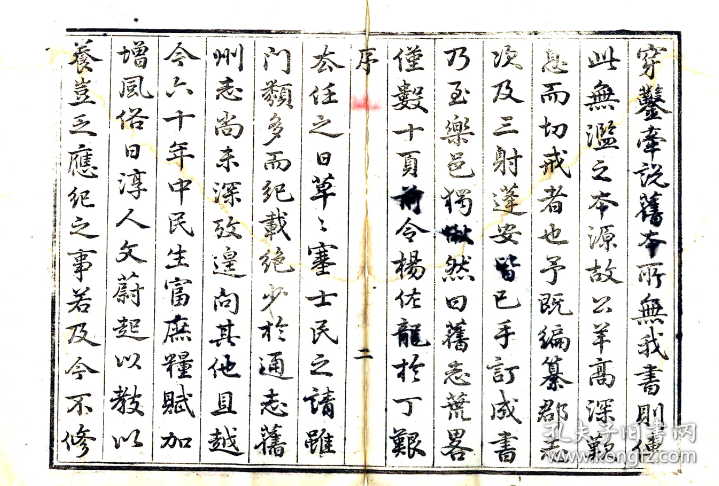 穿鑿牽說舊本所無我書則傳
此無濫之本源故公羊高深歎
息而切戒者也予既編纂郡志
次及三射蓬安皆已手訂成書
乃至樂邑獨愀然曰舊志荒畧
僅數十頁前令楊佐龍於丁艱
序 二
去任之日草〻塞士民之請雖
門類多而紀載絕少於通志舊
州志尚未深攷遑问其他且越
今六十年中民生富庶糧賦加
增風俗日淳人文蔚起以教以
養豈乏應紀之事若及今不修
孔夫子旧书网
www.kongfz.com